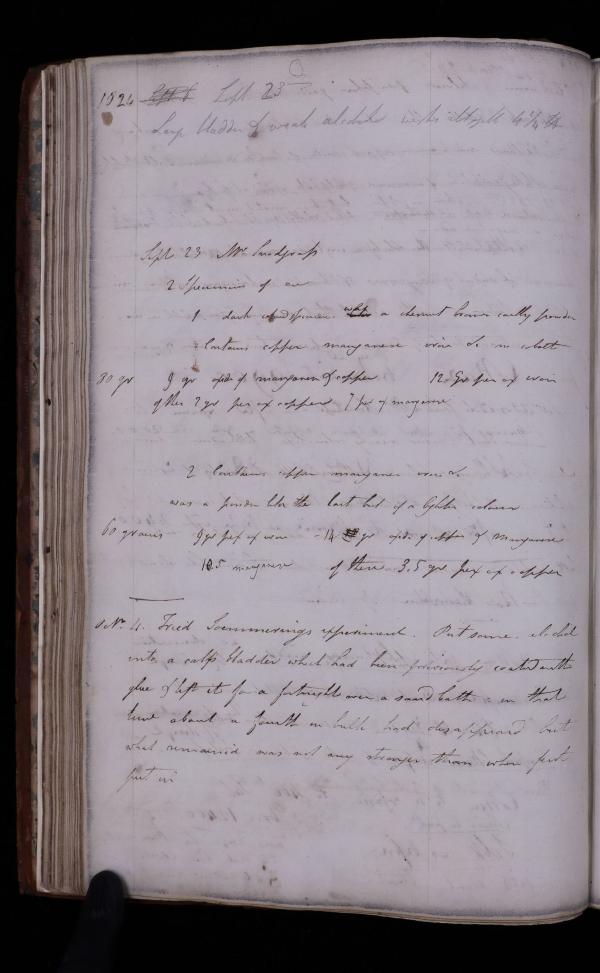 1824 Sept. 23
Large bladder of weak alcohol
Sept 23 Mr
2 Specimens of ore
1 dark a chesnut brown earthy powder
Contains copper manganese iron &c no cobalt
80 gr 9 gr oxide of manganese & copper 12 grs per ox iron
of this 2 gr per ox copper 7 per ox manganese
2 Contains copper manganese iron &c
was a powder like the last but of a lighter colour
60 grains 9 gr per ox iron - 14 gr oxide of copper & manganese
10.5 manganese of these 3.5 gr per ox copper
Nov. 4. Tried Soemmerings experiment. Put some alcohol
into a calfs bladder which had been previously coated with
glue & left it for a fortnight over a sand bath. in that
time about a fourth in bulk had disappeared but
what remained was not any stronger than when first
put in